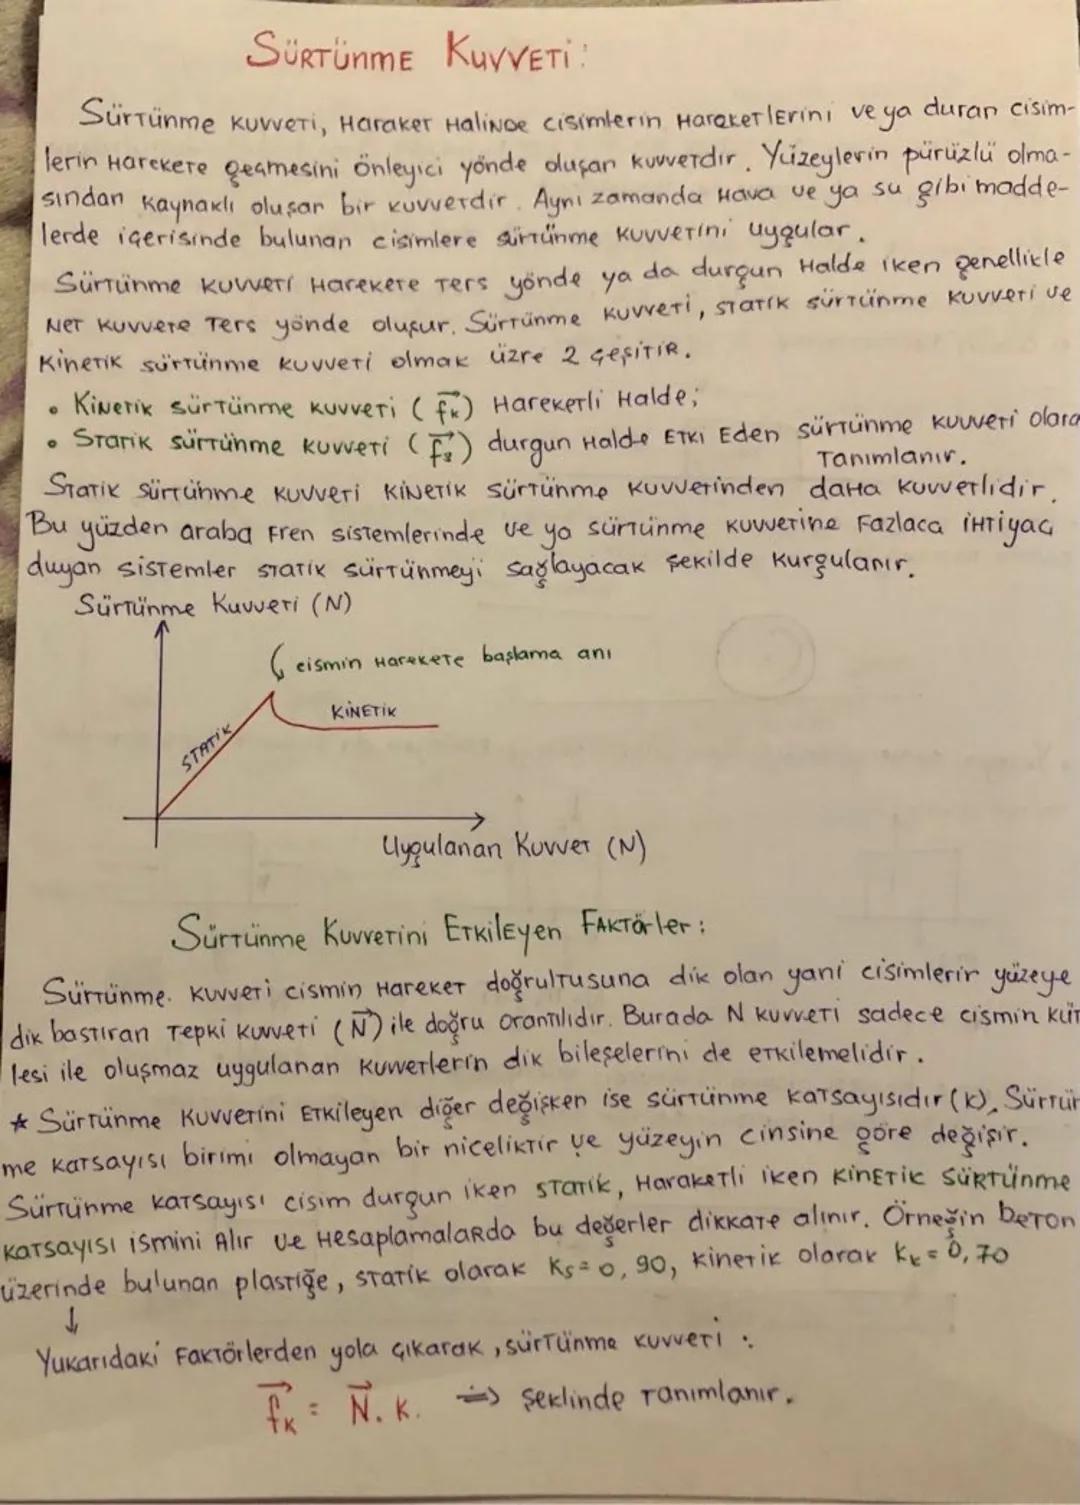 SÜRTÜNME KUVVETİ:
Sürtünme kuvveti, Haraket Halinde cisimlerin Haraketlerini ve ya duran cisim-
lerin Harekete geçmesini önleyici yönde oluşan kuvvetdir. Yüzeylerin pürüzlü olma-
sından kaynaklı oluşan bir kuvvetdir. Aynı zamanda Hava ve ya su gibi madde-
lerde içerisinde bulunan cisimlere sürtünme kuvvetini uygular.
Sürtünme kuvveti Harekete ters yönde ya da durgun Halde iken genellikle
Net kuvvete Ters yönde oluşur. Sürtünme kuvveti, statik sürtünme kuvveti ve
Kinetik sürtünme kuvveti olmak üzre 2 çeşitir.
• Kinetik sürtünme kuvveti (fk) Hareketli Halde;
• Statik sürtünme kuvveti (fs) durgun Halde Etki Eden sürtünme kuvveti olara
Tanımlanır.
Statik sürtünme kuvveti kinetik sürtünme kuvvetinden daha kuvvetlidir.
Bu yüzden araba Fren sistemlerinde ve ya sürtünme kuvvetine Fazlaca iHtiyaç
duyan sistemler statik sürtünmeyi sağlayacak şekilde kurgulanır.
Sürtünme Kuvveti (N)
cismin Harekete başlama anı
KİNETİK
STATİK
Uygulanan Kuvvet (N)
Sürtünme Kuvvetini Etkileyen Faktörler:
Sürtünme. kuvveti cismin Hareket doğrultusuna dik olan yani cisimlerir yüzeye
dik bastıran Tepki kuvveti (N) ile doğru orantılıdır. Burada N kuvveti sadece cismin küt
lesi ile oluşmaz uygulanan kuvvetlerin dik bileşelerini de etkilemelidir.
* Sürtünme Kuvvetini Etkileyen diğer değişken ise sürtünme katsayısıdır (k). Sürtün
me katsayısı birimi olmayan bir niceliktir ve yüzeyin cinsine göre değişir.
Sürtünme katsayısı cisim durgun iken statik, Haraketli iken kinetik sürtünme
katsayısı ismini Alır ve Hesaplamalarda bu değerler dikkate alınır. Örneğin beton
üzerinde bulunan plastiğe, statik olarak Ks=0,90, kinetik olarak Kk=0,70
↓
Yukarıdaki Faktörlerden yola çıkarak, sürtünme kuvveti :
fk = N. K. => şeklinde Tanımlanır.